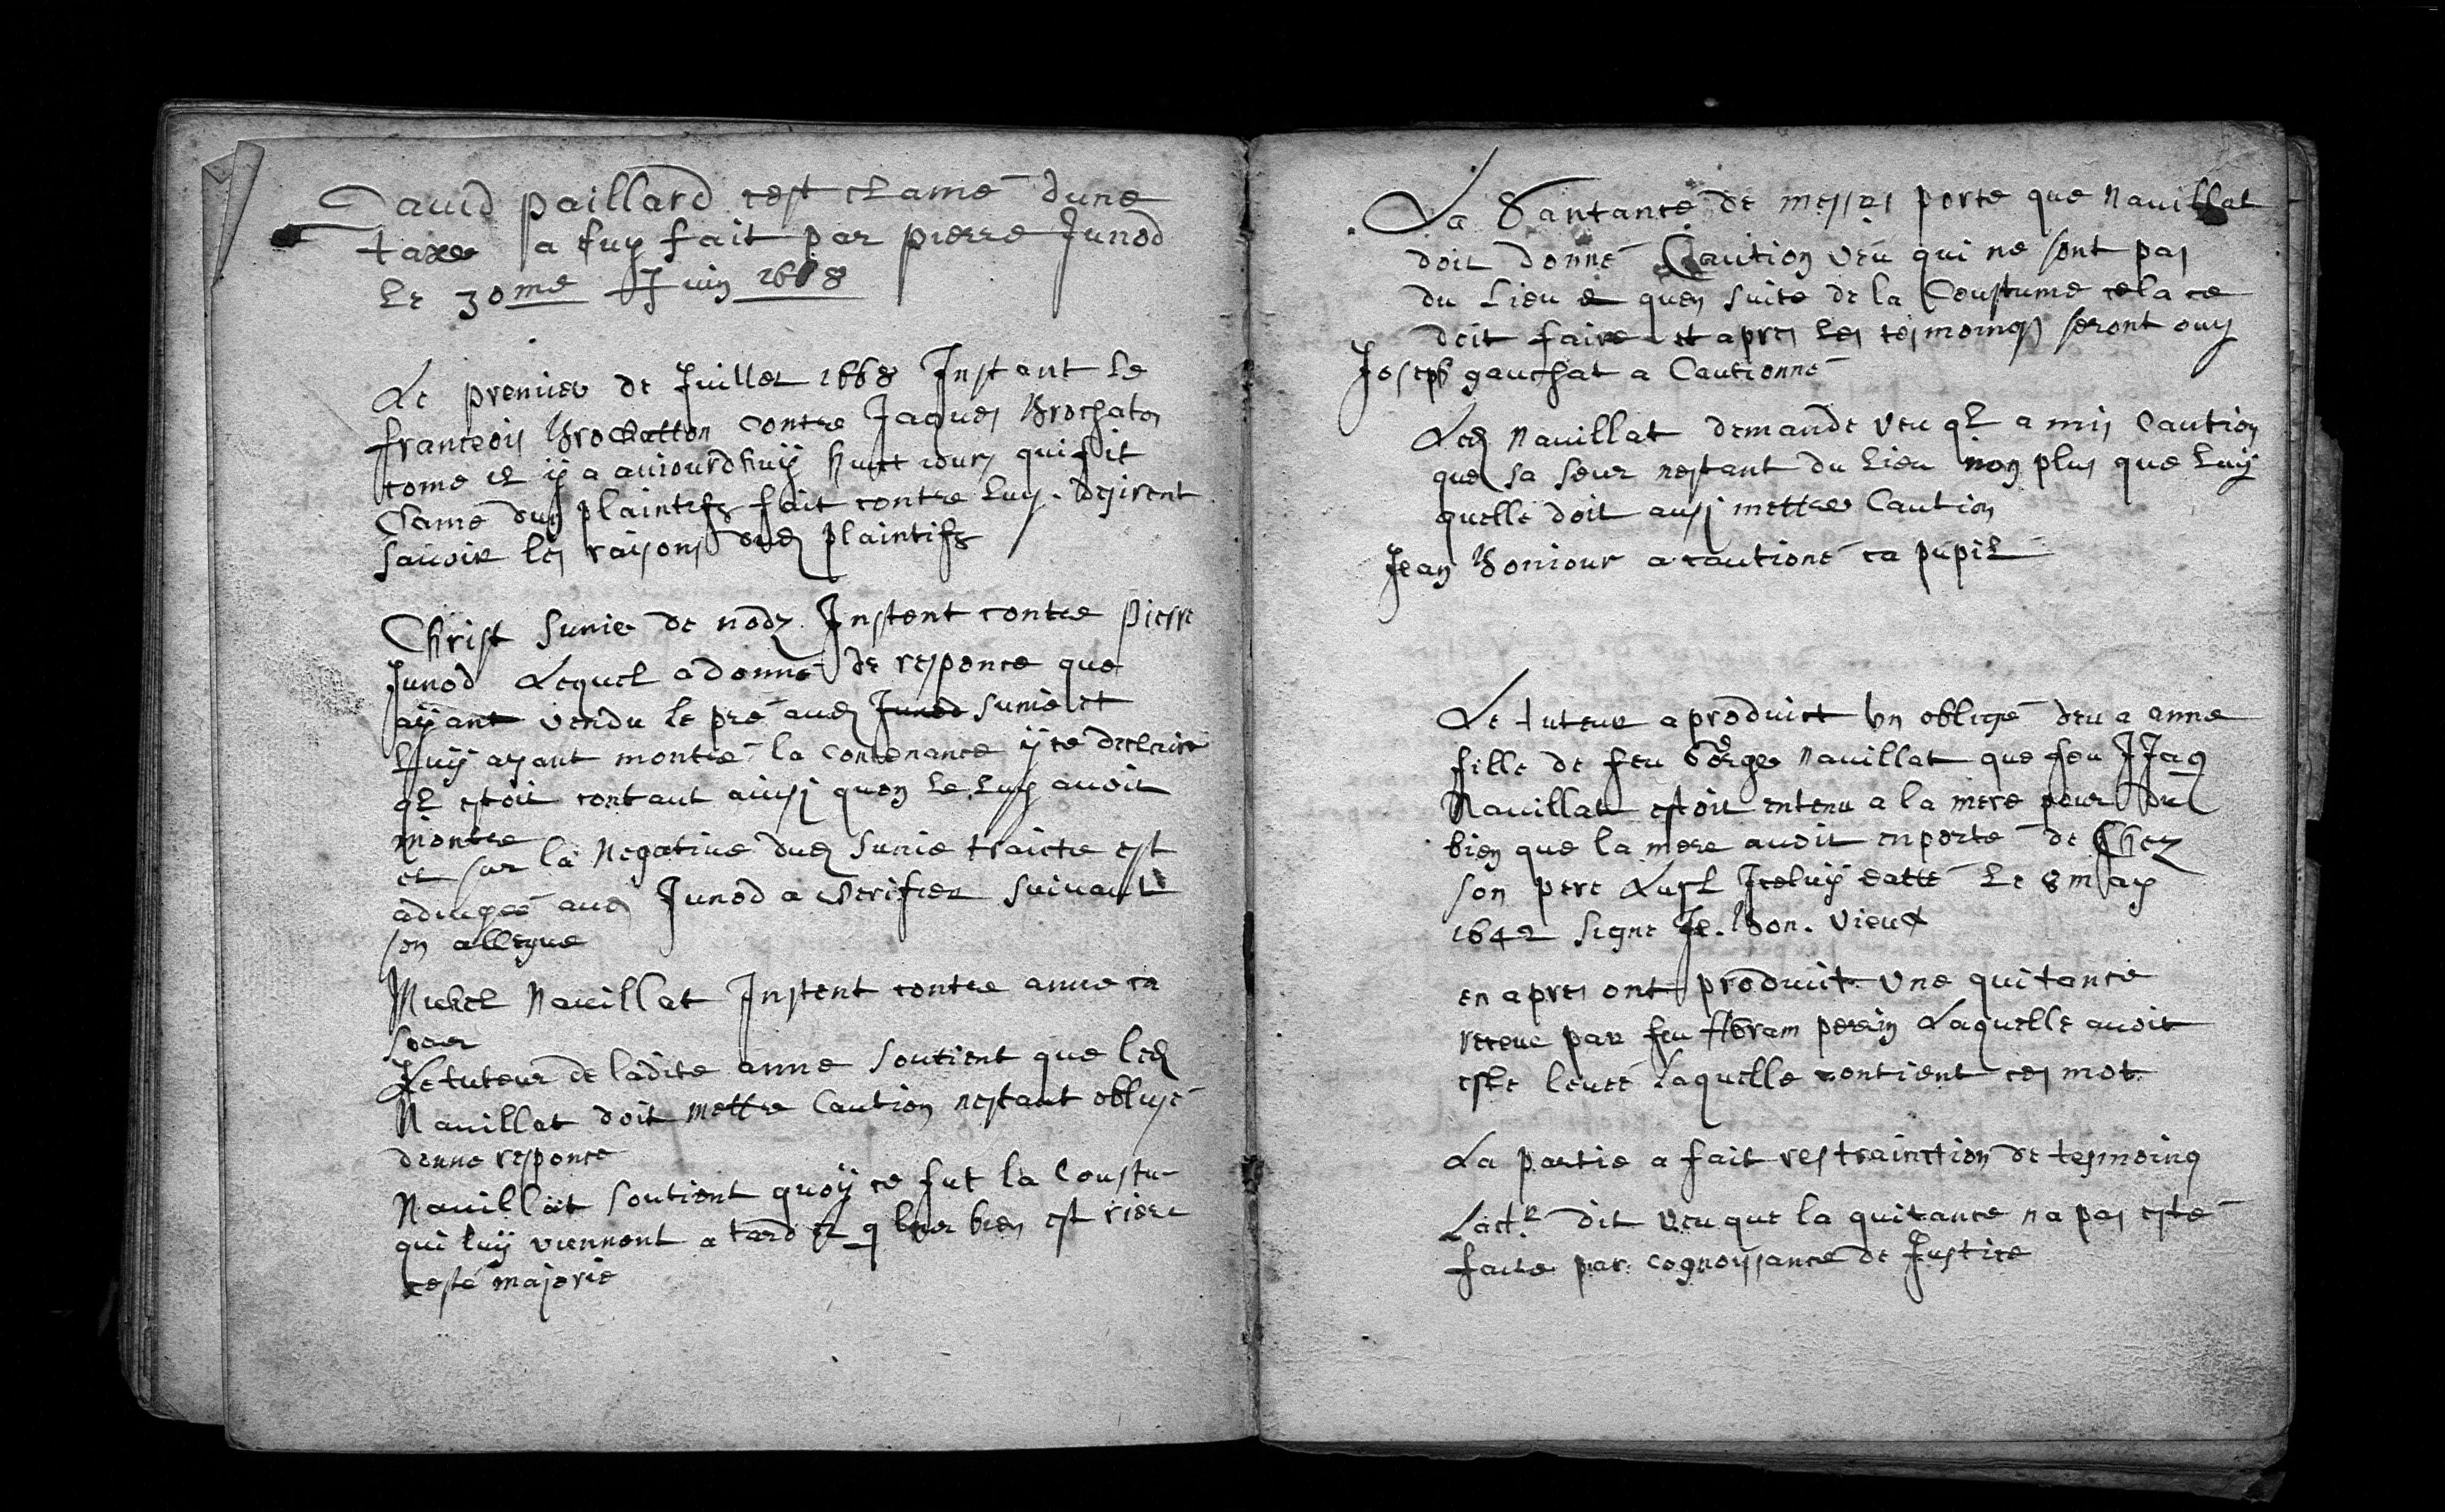 Dauid paillard cest clamé dune
taxe a luy fait par pierre Junod
Le 30me Juin 1668
Le premier de Juillet 1668 Instant Le
francois Brochatton contre Jaques Brochaton
come il ÿ a auiourdhuÿ huit iours qui fit
Clame dun plaintifz fait contre luy. desirent
sauoir les raysons dud plaintifz
Christ Sunie de nodz. Instent contre pierre
Junod Lequel a donné de responce que
aÿant vendu le pré aud Junod Sunie et
Luÿ ayant montré la contenance ÿ ce declaire
ql estoit contant ainsi quon Le Luy auoit
montre
et sur la Negatiue dud Sunie traicte est
adiugée aud Junod a verifier suiuant
son allegue
Michel Nauillat Instent contre anne sa
soeur
Le tuteur de ladite anne soutient que led
Nauillat doit mettre Caution nestant obligé
donne responce
Nauillat soutient quoÿ ce fut la Coustu-
qui luÿ viennent a tard et q leur bien est riere
ceste majorie
La Santance de messrs porte que Nauillat
doit donné Caution veu qui ne sont pas
du Lieu et quen suite de la Coustume cela ce
doit faire et apres Les tesmoings seront ouy
Joseph gauchat a Cautionné
Led Nauillat demande veu ql a mis Caution
que sa seur nestant du Lieu non plus que Luÿ
quelle doit aussi mettre Caution
Jean Boniour a cautioné ca pupil
Le tuteur a produict un obligé deu a anne
fille de feu George Nauillat que feu JJaq
Nauillat estoit entenu a la mere pour du
bien que la mere auoit enporté de Chez
son pere Iceluÿ datté Le 8 may
1642 Signe Je. Bon. vieux
en apres ont produit une quitance
receue par feu Abram perrin Laquelle auoit
este leuee Laquelle contient ces mot
La partie a fait restrainction de tesmoing
Lact.r dit veu que la quitance na pas esté
faite par cognoyssance de Justice